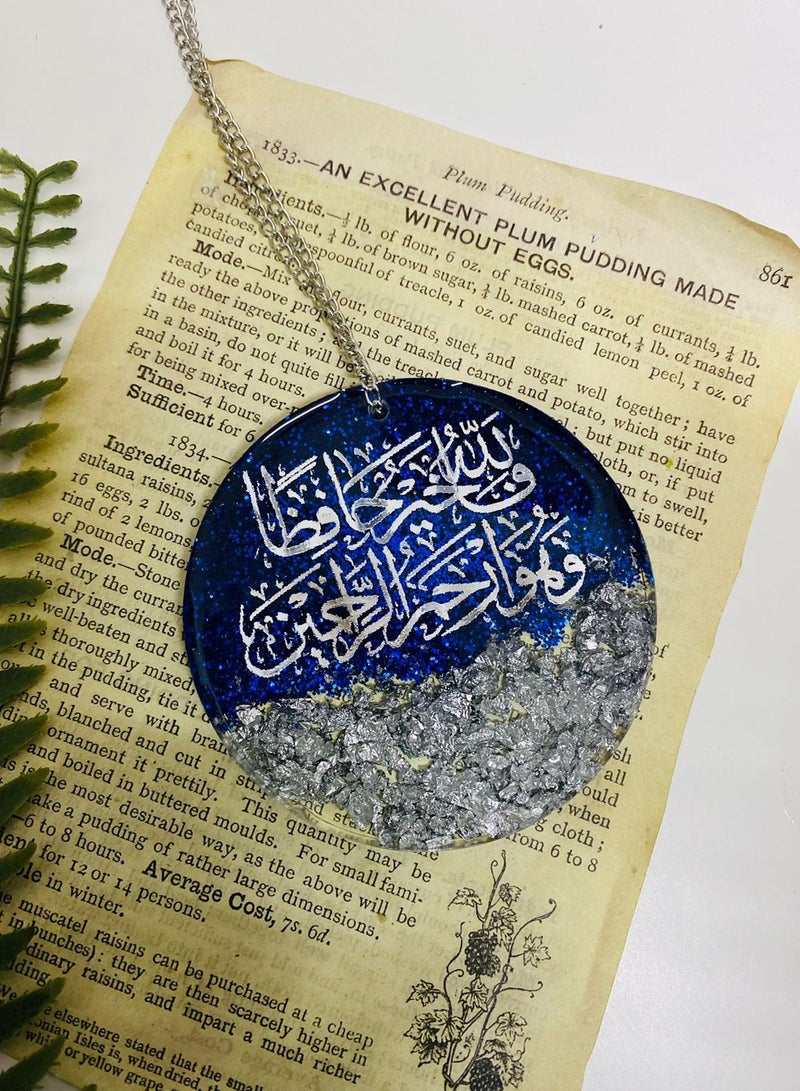 Plum Pudding.
861
1833.—AN EXCELLENT PLUM PUDDING MADE
WITHOUT EGGS.
Ingredients.—¼ lb. of flour, 6 oz. of raisins, 6 oz. of currants, ¼ lb.
of chopped suet, ¼ lb. of brown sugar, ¼ lb. mashed carrot, ¼ lb. of mashed
potatoes, spoonful of treacle, 1 oz. of candied lemon peel, 1 oz. of
candied citron
Mode.—Mix flour, currants, suet, and sugar well together; have
ready the above proportions of mashed carrot and potato, which stir into
the other ingredients; the treacle; but put no liquid
in the mixture, or it will be cloth, or, if put
in a basin, do not quite fill from to swell,
and boil it for 4 hours. is better
for being mixed over-
Time.—4 hours.
Sufficient for 6
1834.—
Ingredients.
sultana raisins,
16 eggs, 2 lbs. o
rind of 2 lemons
of pounded bitte
Mode.—Stone
and dry the curran
the dry ingredients
well-beaten and st
thoroughly mixed,
t in the pudding, tie it
and serve with bran
nds, blanched and cut in strips, and stick
ornament it prettily. This quantity may be
and boiled in buttered moulds. For small fami-
is the most desirable way, as the above will be
ake a pudding of rather large dimensions.
—6 to 8 hours. Average Cost, 7s. 6d.
for 12 or 14 persons.
in winter.
muscatel raisins can be purchased at a cheap
in bunches): they are then scarcely higher in
dinary raisins, and impart a much richer
dding.
elsewhere stated that the small
onian Isles is, when dried, the
white or yellow grape
all
ould
when
cloth;
from 6 to 8
فالله خير حافظًا
وهو أرحم الراحمين